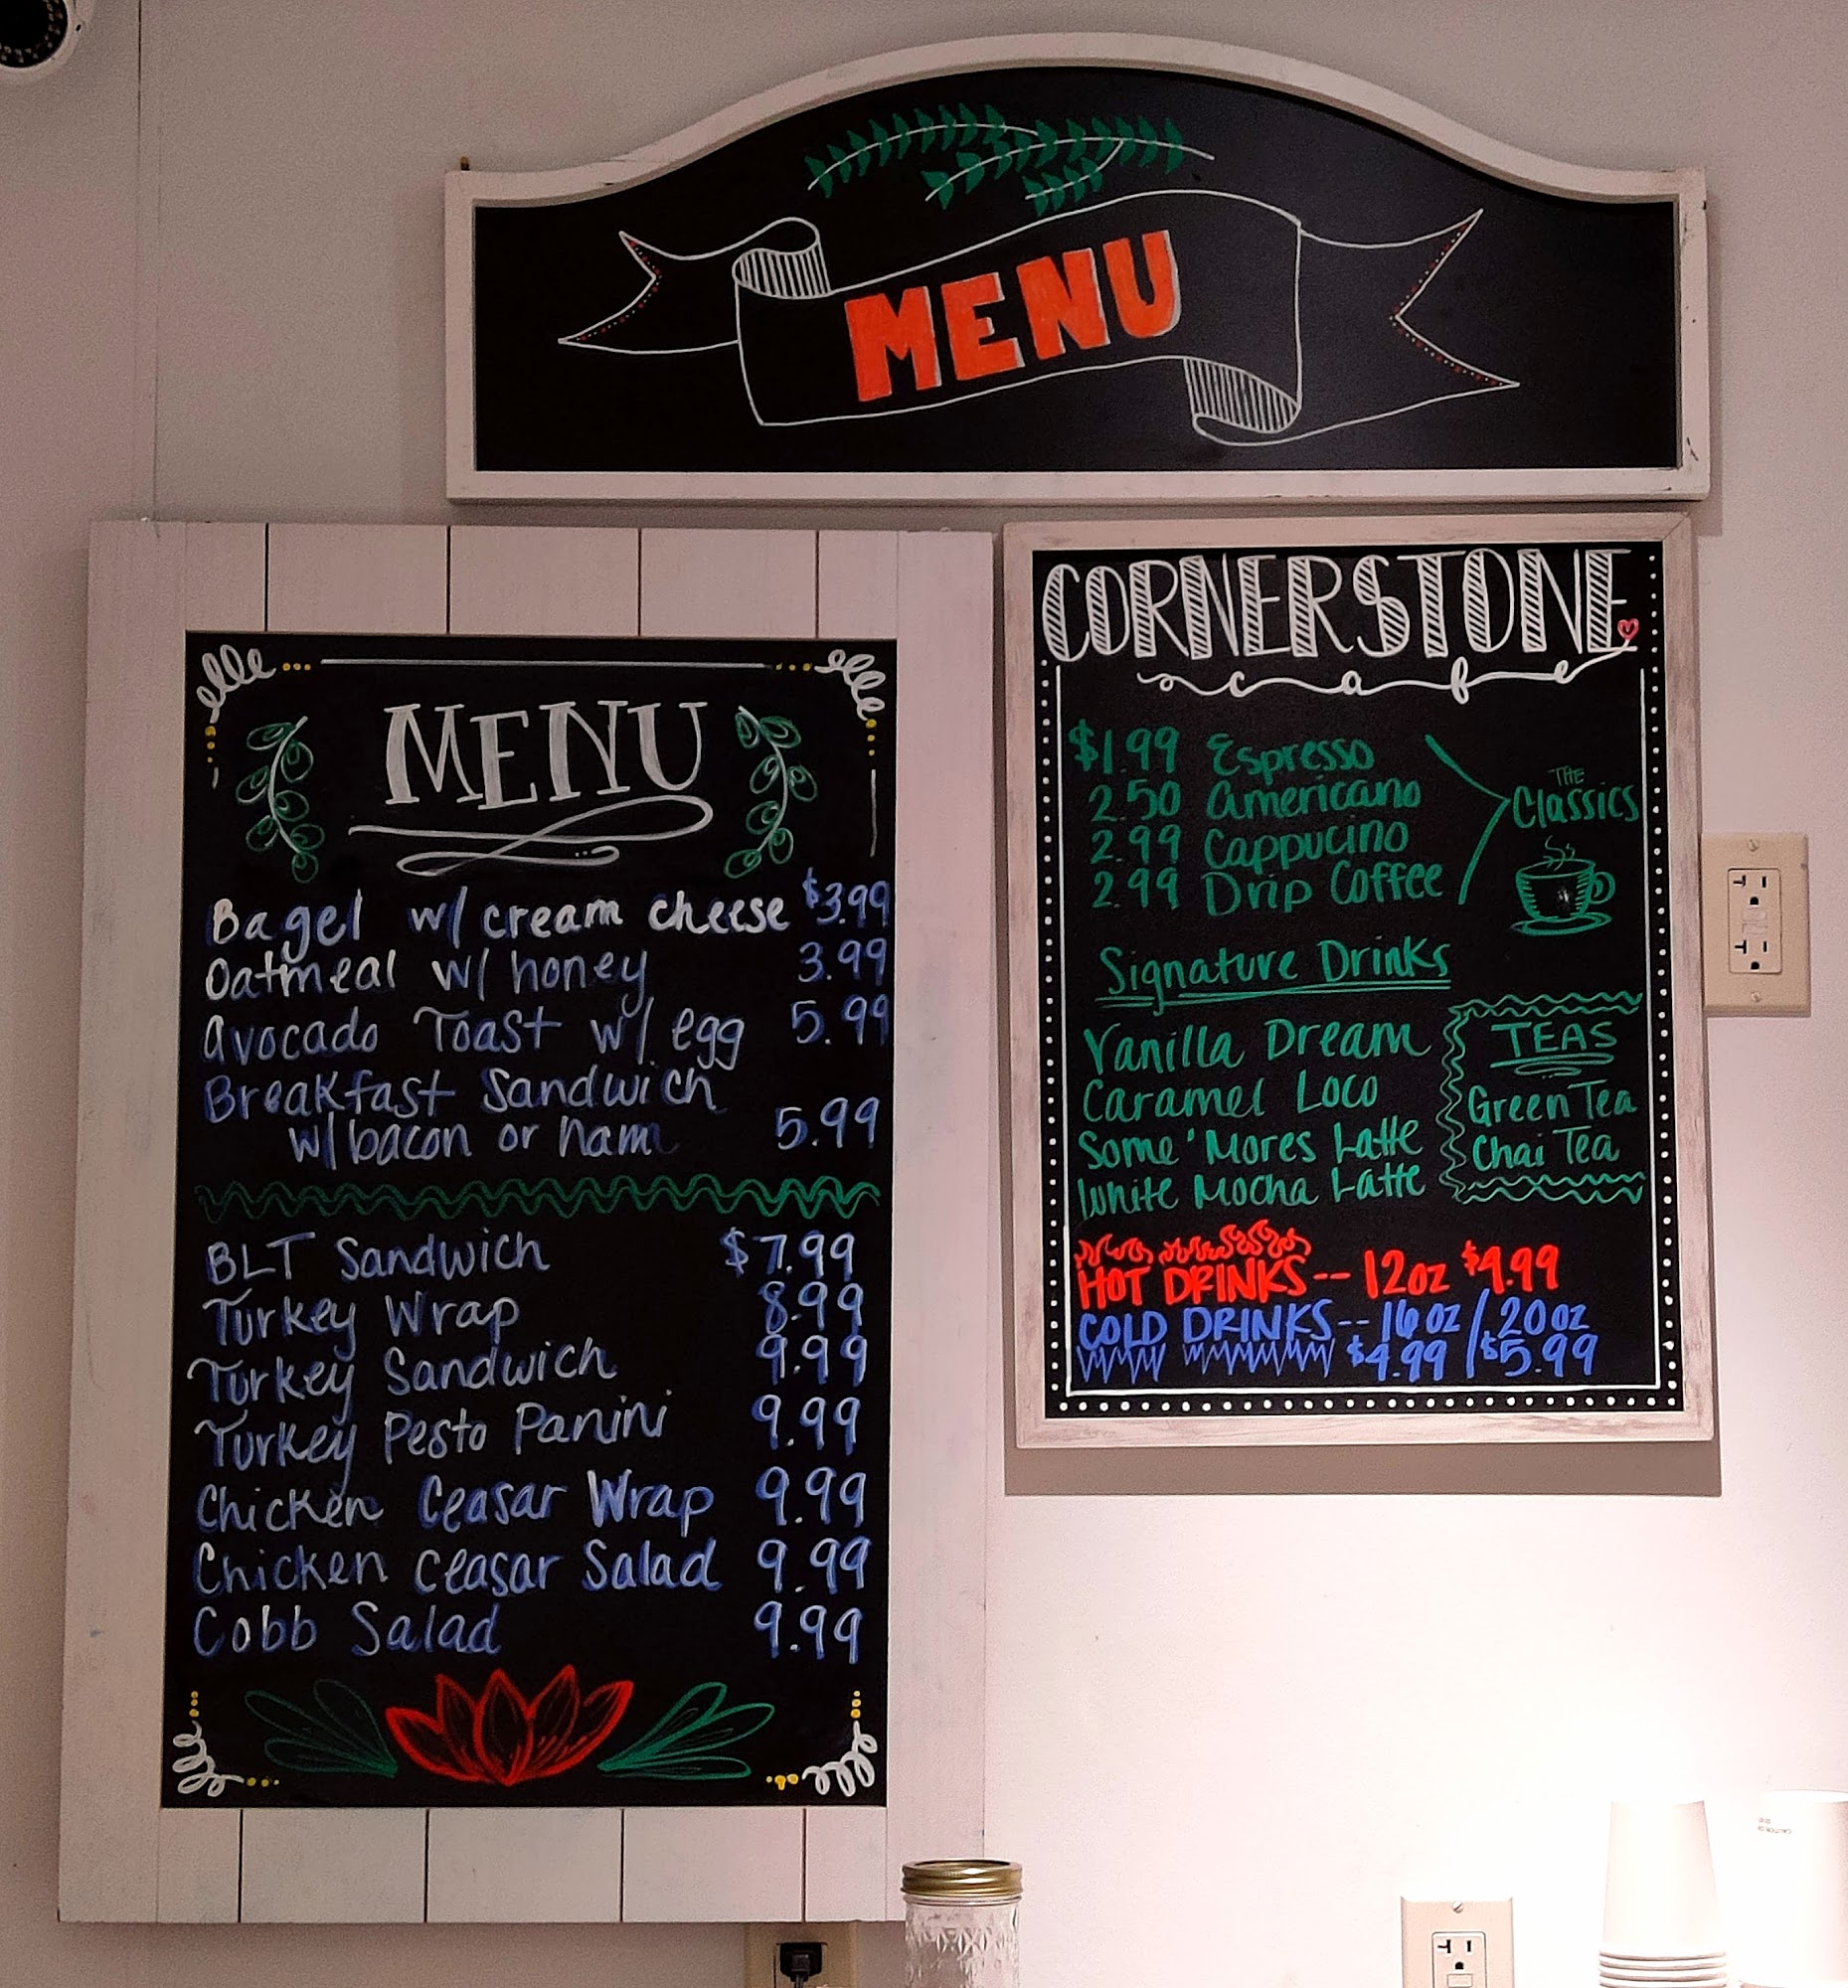 MENU
MENU
Bagel w/ cream cheese $3.99
Oatmeal w/ honey 3.99
Avocado Toast w/ egg 5.99
Breakfast Sandwich
w/ bacon or ham 5.99
BLT Sandwich $7.99
Turkey Wrap 8.99
Turkey Sandwich 9.99
Turkey Pesto Panini 9.99
Chicken Ceasar Wrap 9.99
Chicken Ceasar Salad 9.99
Cobb Salad 9.99
CORNERSTONE
cafe
$1.99 Espresso
2.50 Americano
2.99 Cappucino
2.99 Drip Coffee
THE
Classics
Signature Drinks
Vanilla Dream
Caramel Loco
Some'Mores Latte
White Mocha Latte
TEAS
Green Tea
Chai Tea
HOT DRINKS -- 12oz $4.99
COLD DRINKS -- 16oz / 20oz
$4.99 / $5.99